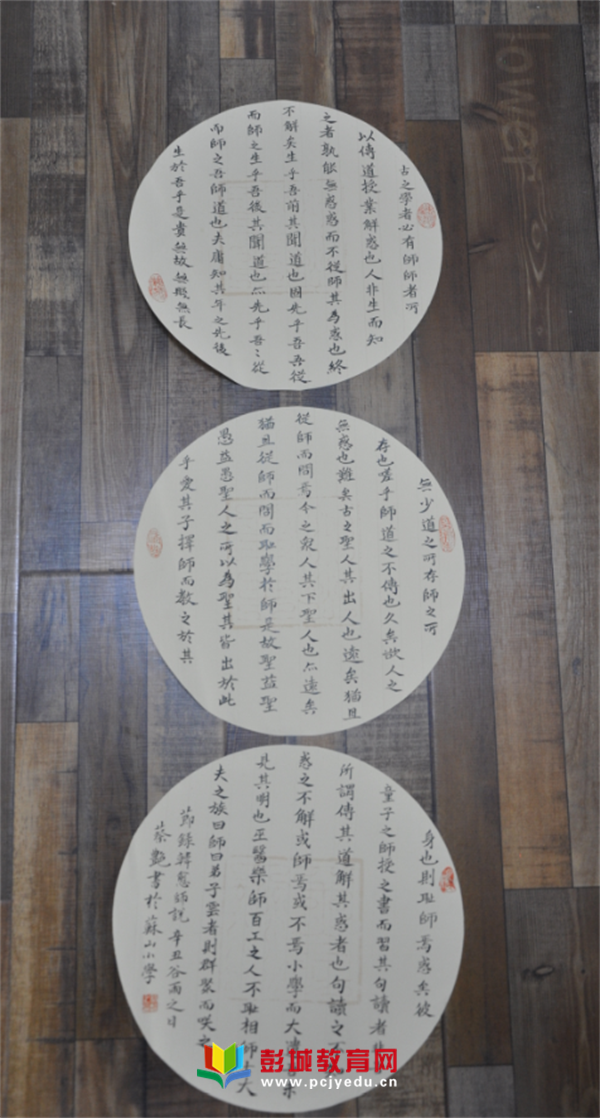 古之學者必有師師者所
以傳道授業解惑也人非生而知
之者孰能無惑惑而不從師其為惑也終
不解矣生乎吾前其聞道也固先乎吾吾從
而師之生乎吾後其聞道也亦先乎吾〻從
而師之吾師道也夫庸知其年之先後
生於吾乎是故無貴無賤無長
無少道之所存師之所
存也嗟乎師道之不傳也久矣欲人之
無惑也難矣古之聖人其出人也遠矣猶且
從師而問焉今之眾人其下聖人也亦遠矣
而恥學於師是故聖益聖
愚益愚聖人之所以為聖其皆出於此
乎愛其子擇師而教之於其
身也則恥師焉惑矣彼
童子之師授之書而習其句讀者
所謂傳其道解其惑者也句讀之不
惑之不解或師焉或不焉小學而大遺
見其明也巫醫樂師百工之人不恥相師
夫之族曰師曰弟子雲者則群聚而笑之
節錄韓愈師說辛丑谷雨之日
蔡艷書於蘇山小學
彭城教育网
www.pcjyedu.cn
lower